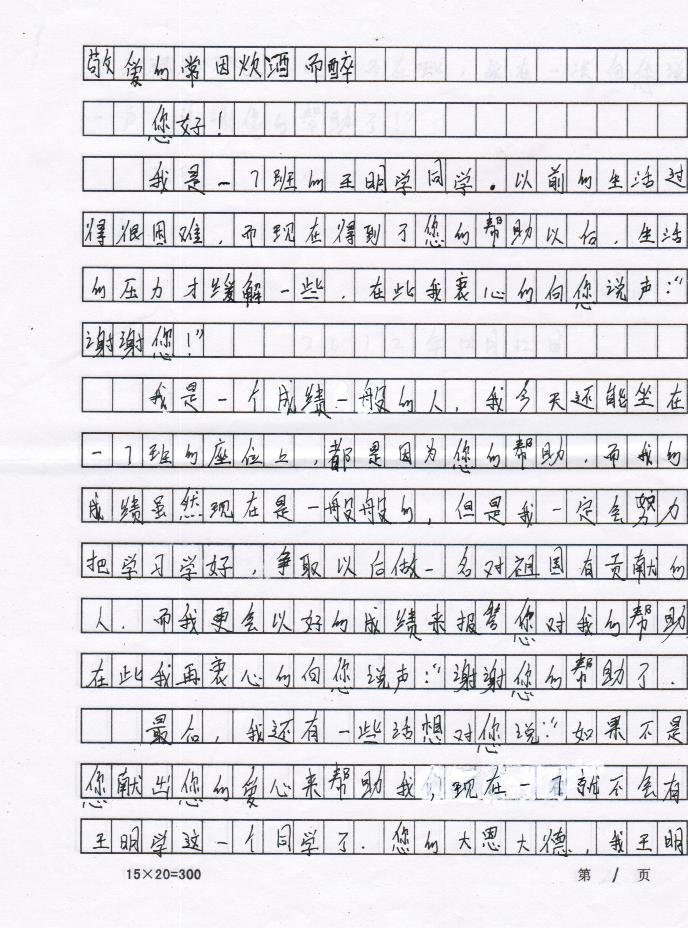 敬爱的常因炊酒而醉
您好！
我是一7班的王明学同学。以前的生活过
得很困难，而现在得到了您的帮助以后，生活
的压力才缓解一些，在此我衷心的向您说声：“
谢谢您！”
我是一个成绩一般的人，我今天还能坐在
一7班的座位上，都是因为您的帮助，而我的
成绩虽然现在是一般般的，但是我一定会努力
把学习学好，争取以后做一名对祖国有贡献的
人，而我更会以好的成绩来报答您对我的帮助
在此我再衷心的向您说声：“谢谢您的帮助了.
最后，我还有一些话想对你说：“如果不是
您献出您的爱心来帮助我，现在一7就不会有
王明学这一个同学了.您的大恩大德，我王明
15×20=300
第 1 页